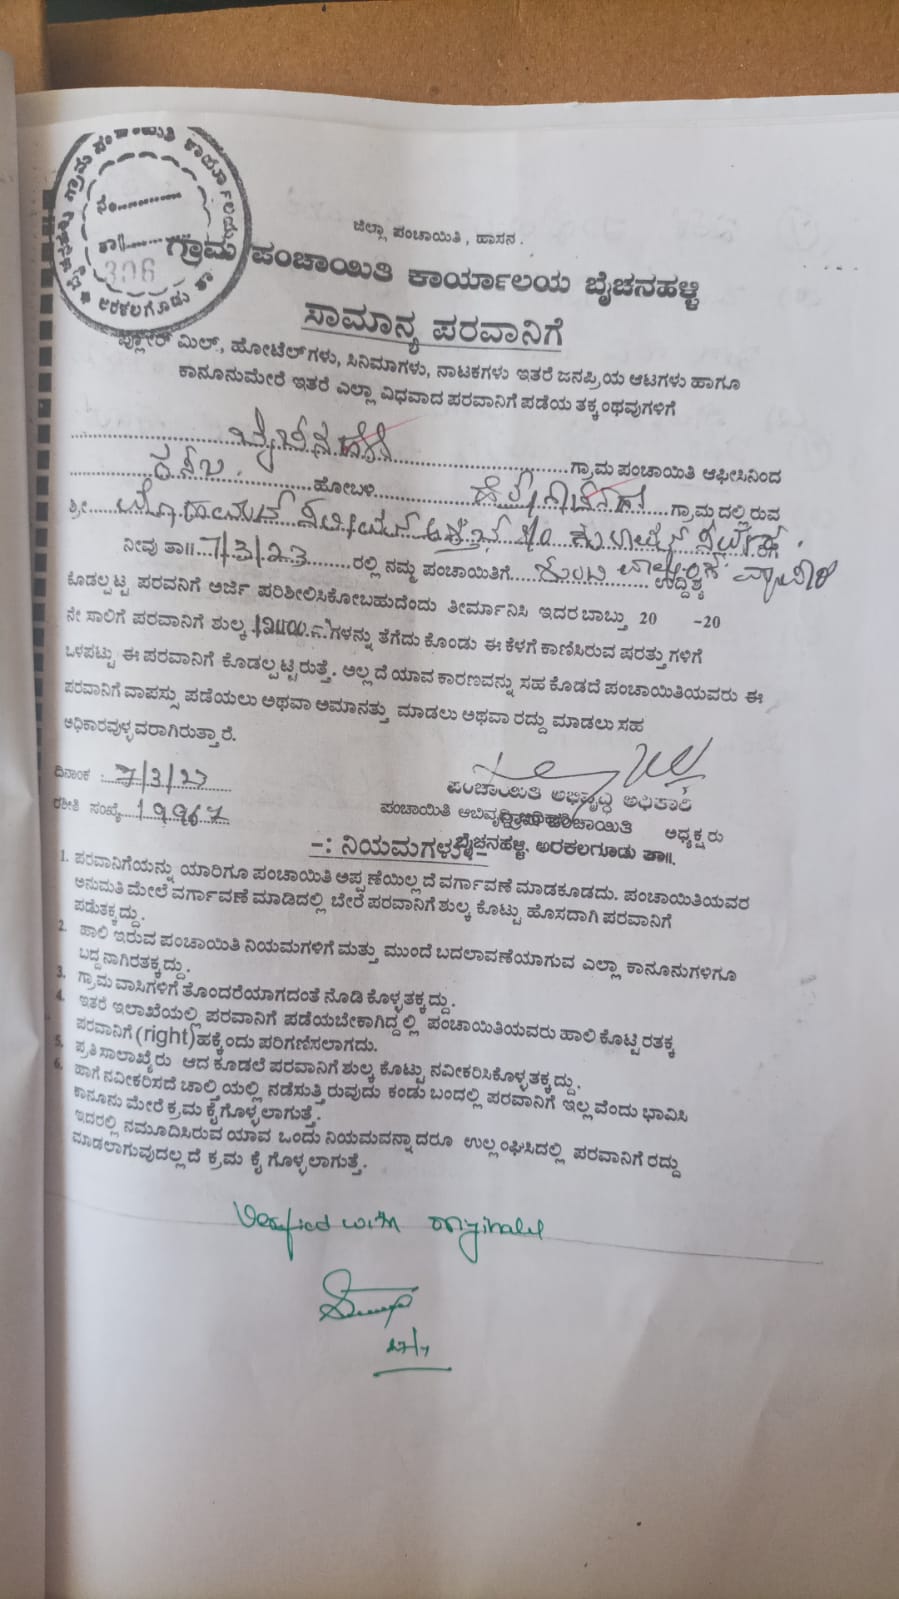 ಗ್ರಾಮ ಪಂಚಾಯಿತಿ ಕಾರ್ಯಾಲಯ
ನಂ..........
ತಾ||..........
306
ಅರಕಲಗೂಡು ತಾ
ಜಿಲ್ಲಾ ಪಂಚಾಯಿತಿ, ಹಾಸನ.
ಗ್ರಾಮ ಪಂಚಾಯಿತಿ ಕಾರ್ಯಾಲಯ ಬೈಚನಹಳ್ಳಿ
ಸಾಮಾನ್ಯ ಪರವಾನಿಗೆ
ಪ್ಲೋರ್ ಮಿಲ್, ಹೋಟೆಲ್‌ಗಳು, ಸಿನಿಮಾಗಳು, ನಾಟಕಗಳು ಇತರೆ ಜನಪ್ರಿಯ ಆಟಗಳು ಹಾಗೂ
ಕಾನೂನುಮೇರೆ ಇತರೆ ಎಲ್ಲಾ ವಿಧವಾದ ಪರವಾನಿಗೆ ಪಡೆಯ ತಕ್ಕಂಥವುಗಳಿಗೆ
ಗ್ರಾಮ ಪಂಚಾಯಿತಿ ಆಫೀಸಿನಿಂದ
ಕಸಬ. ಹೋಬಳಿ ಗ್ರಾಮದಲ್ಲಿರುವ
ಶ್ರೀ ಗೆ
ನೀವು ತಾ|| 7/3/23 ರಲ್ಲಿ ನಮ್ಮ ಪಂಚಾಯಿತಿಗೆ ಶುಂಠಿ ವಾಷಿಂಗ್ ವ್ಯಾಪಾರ ಉದ್ದಿಶ್ಯ
ಕೊಡಲ್ಪಟ್ಟ ಪರವನಿಗೆ ಅರ್ಜಿ ಪರಿಶೀಲಿಸಿಕೋಬಹುದೆಂದು ತೀರ್ಮಾನಿಸಿ ಇದರ ಬಾಬ್ತು 20 -20
ನೇ ಸಾಲಿಗೆ ಪರವಾನಿಗೆ ಶುಲ್ಕ ಗಳನ್ನು ತೆಗೆದು ಕೊಂಡು ಈ ಕೆಳಗೆ ಕಾಣಿಸಿರುವ ಷರತ್ತುಗಳಿಗೆ
ಒಳಪಟ್ಟು ಈ ಪರವಾನಿಗೆ ಕೊಡಲ್ಪಟ್ಟಿರುತ್ತೆ. ಅಲ್ಲದೆ ಯಾವ ಕಾರಣವನ್ನು ಸಹ ಕೊಡದೆ ಪಂಚಾಯಿತಿಯವರು ಈ
ಪರವಾನಿಗೆ ವಾಪಸ್ಸು ಪಡೆಯಲು ಅಥವಾ ಅಮಾನತ್ತು ಮಾಡಲು ಅಥವಾ ರದ್ದು ಮಾಡಲು ಸಹ
ಅಧಿಕಾರವುಳ್ಳವರಾಗಿರುತ್ತಾರೆ.
ದಿನಾಂಕ : 7/3/23
ಪಂಚಾಯಿತಿ ಅಭಿವೃದ್ಧಿ ಅಧಿಕಾರಿ
ರಶೀತಿ ಸಂಖ್ಯೆ 19967
ಪಂಚಾಯಿತಿ ಆಬಿವೃದ್ಧಿ ಅಧ್ಯಕ್ಷರು
ಗ್ರಾಮ ಪಂಚಾಯಿತಿ
ಬೈಚನಹಳ್ಳಿ. ಅರಕಲಗೂಡು ತಾ||.
-: ನಿಯಮಗಳು :-
1. ಪರವಾನಿಗೆಯನ್ನು ಯಾರಿಗೂ ಪಂಚಾಯಿತಿ ಅಪ್ಪಣೆಯಿಲ್ಲದೆ ವರ್ಗಾವಣೆ ಮಾಡಕೂಡದು. ಪಂಚಾಯಿತಿಯವರ
ಅನುಮತಿ ಮೇಲೆ ವರ್ಗಾವಣೆ ಮಾಡಿದಲ್ಲಿ ಬೇರೆ ಪರವಾನಿಗೆ ಶುಲ್ಕ ಕೊಟ್ಟು ಹೊಸದಾಗಿ ಪರವಾನಿಗೆ
ಪಡುತಕ್ಕದ್ದು.
2. ಹಾಲಿ ಇರುವ ಪಂಚಾಯಿತಿ ನಿಯಮಗಳಿಗೆ ಮತ್ತು ಮುಂದೆ ಬದಲಾವಣೆಯಾಗುವ ಎಲ್ಲಾ ಕಾನೂನುಗಳಿಗೂ
ಬದ್ದನಾಗಿರತಕ್ಕದ್ದು.
3. ಗ್ರಾಮವಾಸಿಗಳಿಗೆ ತೊಂದರೆಯಾಗದಂತೆ ನೊಡಿಕೊಳ್ಳತಕ್ಕದ್ದು.
4. ಇತರೆ ಇಲಾಖೆಯಲ್ಲಿ ಪರವಾನಿಗೆ ಪಡೆಯಬೇಕಾಗಿದ್ದಲ್ಲಿ ಪಂಚಾಯಿತಿಯವರು ಹಾಲಿ ಕೊಟ್ಟಿರತಕ್ಕ
ಪರವಾನಿಗೆ (right) ಹಕ್ಕೆಂದು ಪರಿಗಣಿಸಲಾಗದು.
5. ಪ್ರತಿಸಾಲಾಖೈರು ಆದ ಕೂಡಲೆ ಪರವಾನಿಗೆ ಶುಲ್ಕ ಕೊಟ್ಟು ನವೀಕರಿಸಿಕೊಳ್ಳತಕ್ಕದ್ದು.
6. ಹಾಗೆ ನವೀಕರಿಸದೆ ಚಾಲ್ತಿಯಲ್ಲಿ ನಡೆಸುತ್ತಿರುವುದು ಕಂಡು ಬಂದಲ್ಲಿ ಪರವಾನಿಗೆ ಇಲ್ಲವೆಂದು ಭಾವಿಸಿ
ಕಾನೂನು ಮೇರೆ ಕ್ರಮ ಕೈಗೊಳ್ಳಲಾಗುತ್ತೆ.
ಇದರಲ್ಲಿ ನಮೂದಿಸಿರುವ ಯಾವ ಒಂದು ನಿಯಮವನ್ನಾದರೂ ಉಲ್ಲಂಘಿಸಿದಲ್ಲಿ ಪರವಾನಿಗೆ ರದ್ದು
ಮಾಡಲಾಗುವುದಲ್ಲದೆ ಕ್ರಮ ಕೈಗೊಳ್ಳಲಾಗುತ್ತೆ.
Verified with original